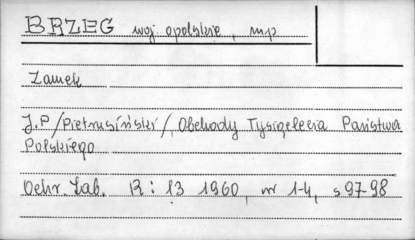 BRZEG woj opolskie, mp
Zamek
J.P/Pietrusiński/ Obchody Tysiąclecia Państwa
Polskiego
Ochr. Zab. R: 13 1960, nr 1-4, s 97-98